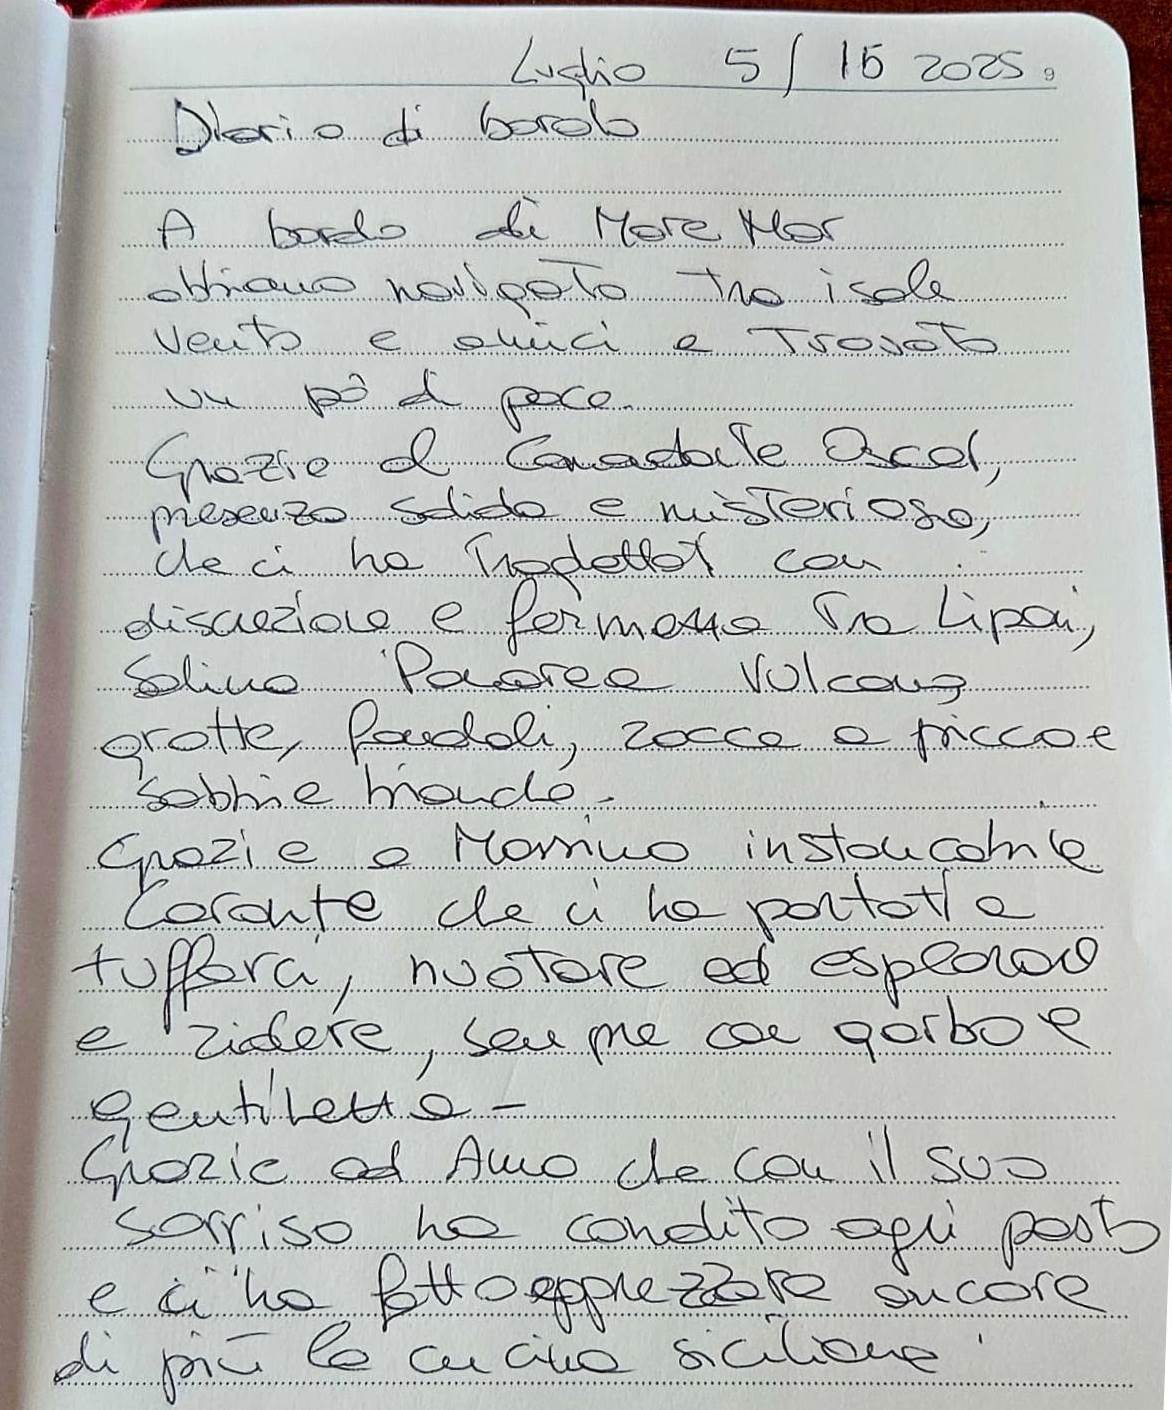 Luglio 5/15 2025
9
Diario di bordo
A bordo di More Mar
abbiamo navigato tra isole
vento e amici e trovato
un pò di pace.
Grazie al Comandante Oscar,
presenza solida e misteriosa,
che ci ha
con
discrezione e fermezza tra Lipari,
Salina Panarea Vulcano
grotte, fondali, rocce a picco e
sabbie bianche.
Grazie a Massimo instancabile
che ci ha portati a
tuffarci, nuotare ed esplorare
e ridere, sempre con garbo e
gentilezza -
Grazie ad Anna che con il suo
sorriso ha condito ogni pasto
e ci ha fatto apprezzare ancora
di più la cucina siciliana